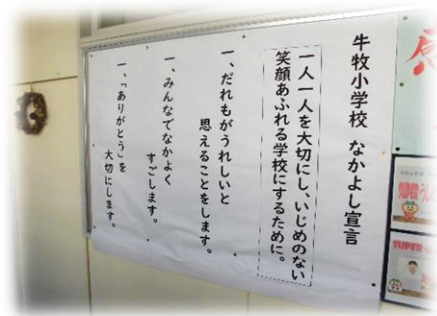 牛牧小学校 なかよし宣言
一人一人を大切にし、いじめのない
笑顔あふれる学校にするために。
一、だれもがうれしいと
思えることをします。
一、みんなでなかよく
すごします。
一、「ありがとう」を
大切にします。
SUPER
SUPER